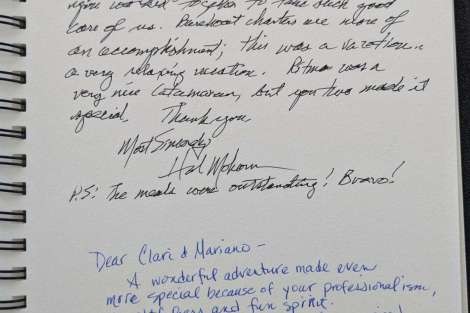 care of us. Bareboat charters are more of
an accomplishment; this was a vacation..
a very relaxing vacation. Ritmo was a
very nice Catamaran, but you two made it
special. Thank you
Most Sincerely,
Hal
P.S! The meals were outstanding! Bravo!
Dear Clari & Mariano -
A wonderful adventure made even
more special because of your professionalism,
and fun spirit.